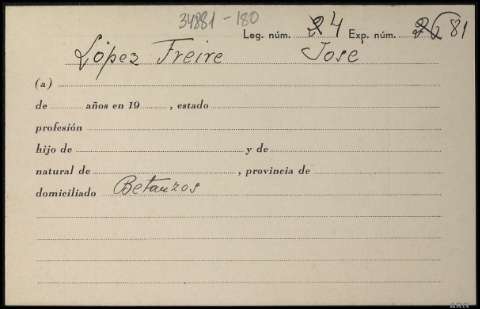 34881-180
Leg. núm. 24 Exp. núm. 81
López Freire Jose
(a)
de años en 19 , estado
profesión
hijo de y de
natural de , provincia de
domiciliado Betanzos